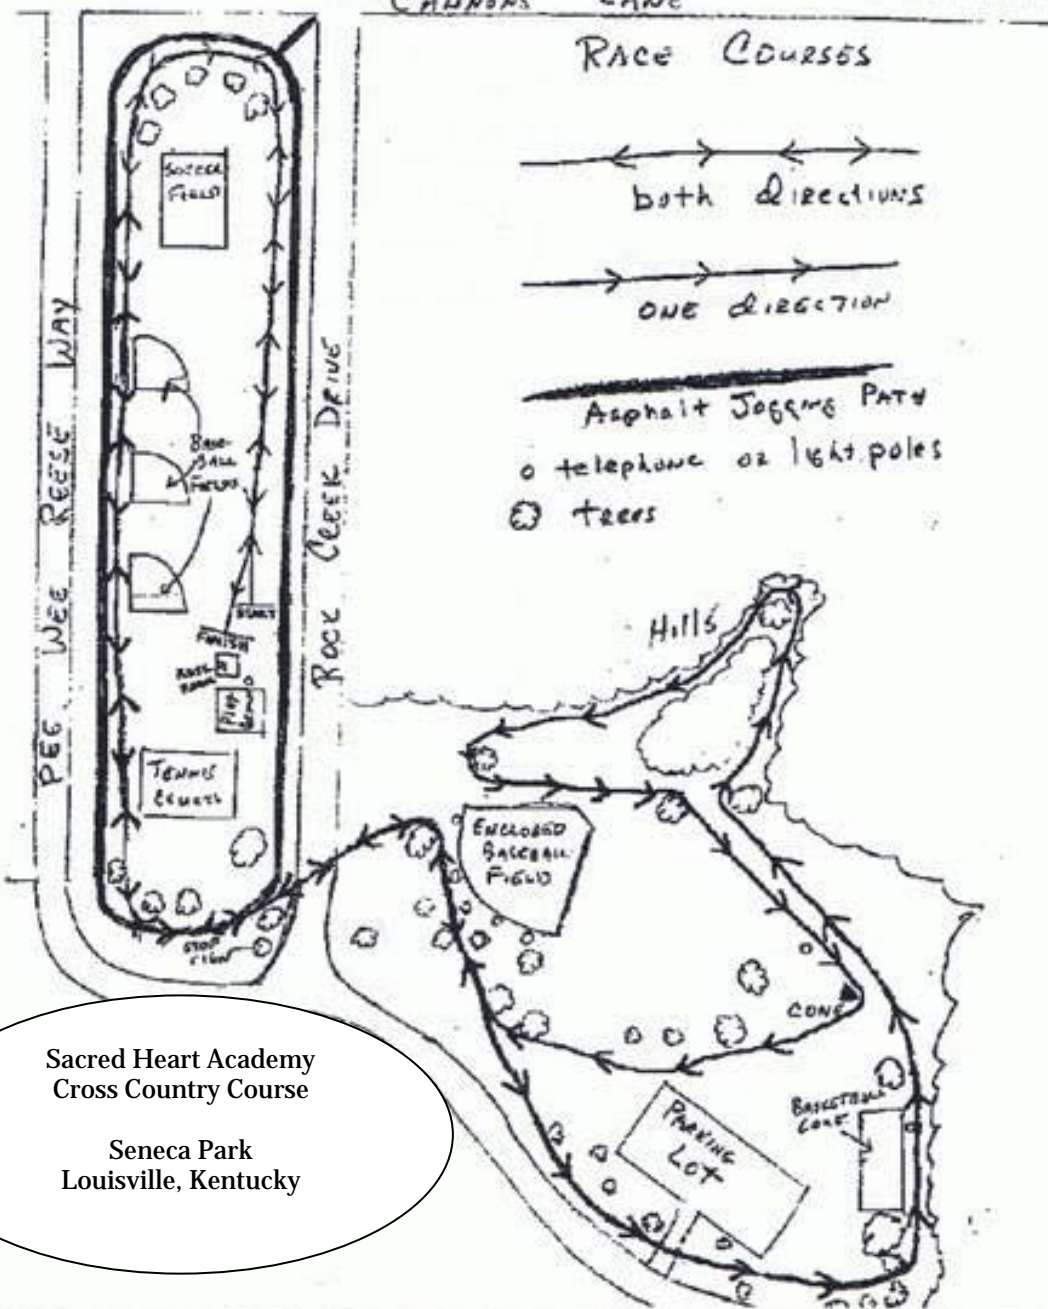 CANNONS LANE
RACE COURSES
both directions
ONE direction
Asphalt Jogging PATH
telephone or light poles
trees
SOCCER
FIELD
PEE WEE REESE WAY
BASE-
BALL
FIELDS
ROCK CREEK DRIVE
START
FINISH
TENNIS
COURTS
STOP
SIGN
Hills
ENCLOSED
BASEBALL
FIELD
CONE
PARKING
LOT
BASKETBALL
Sacred Heart Academy
Cross Country Course
Seneca Park
Louisville, Kentucky